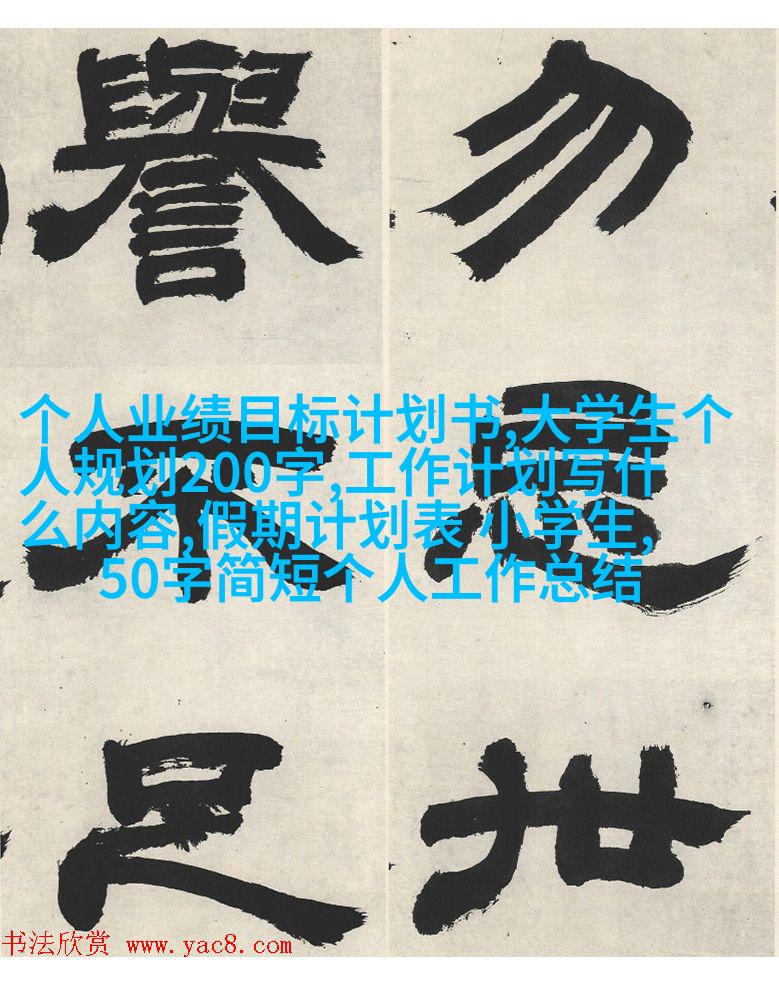 勿
世
譽不足
个人业绩目标计划书,大学生个
人规划200字,工作计划写什
么内容,假期计划表 小学生,
50字简短个人工作总结
书法欣赏 www.yac8.com